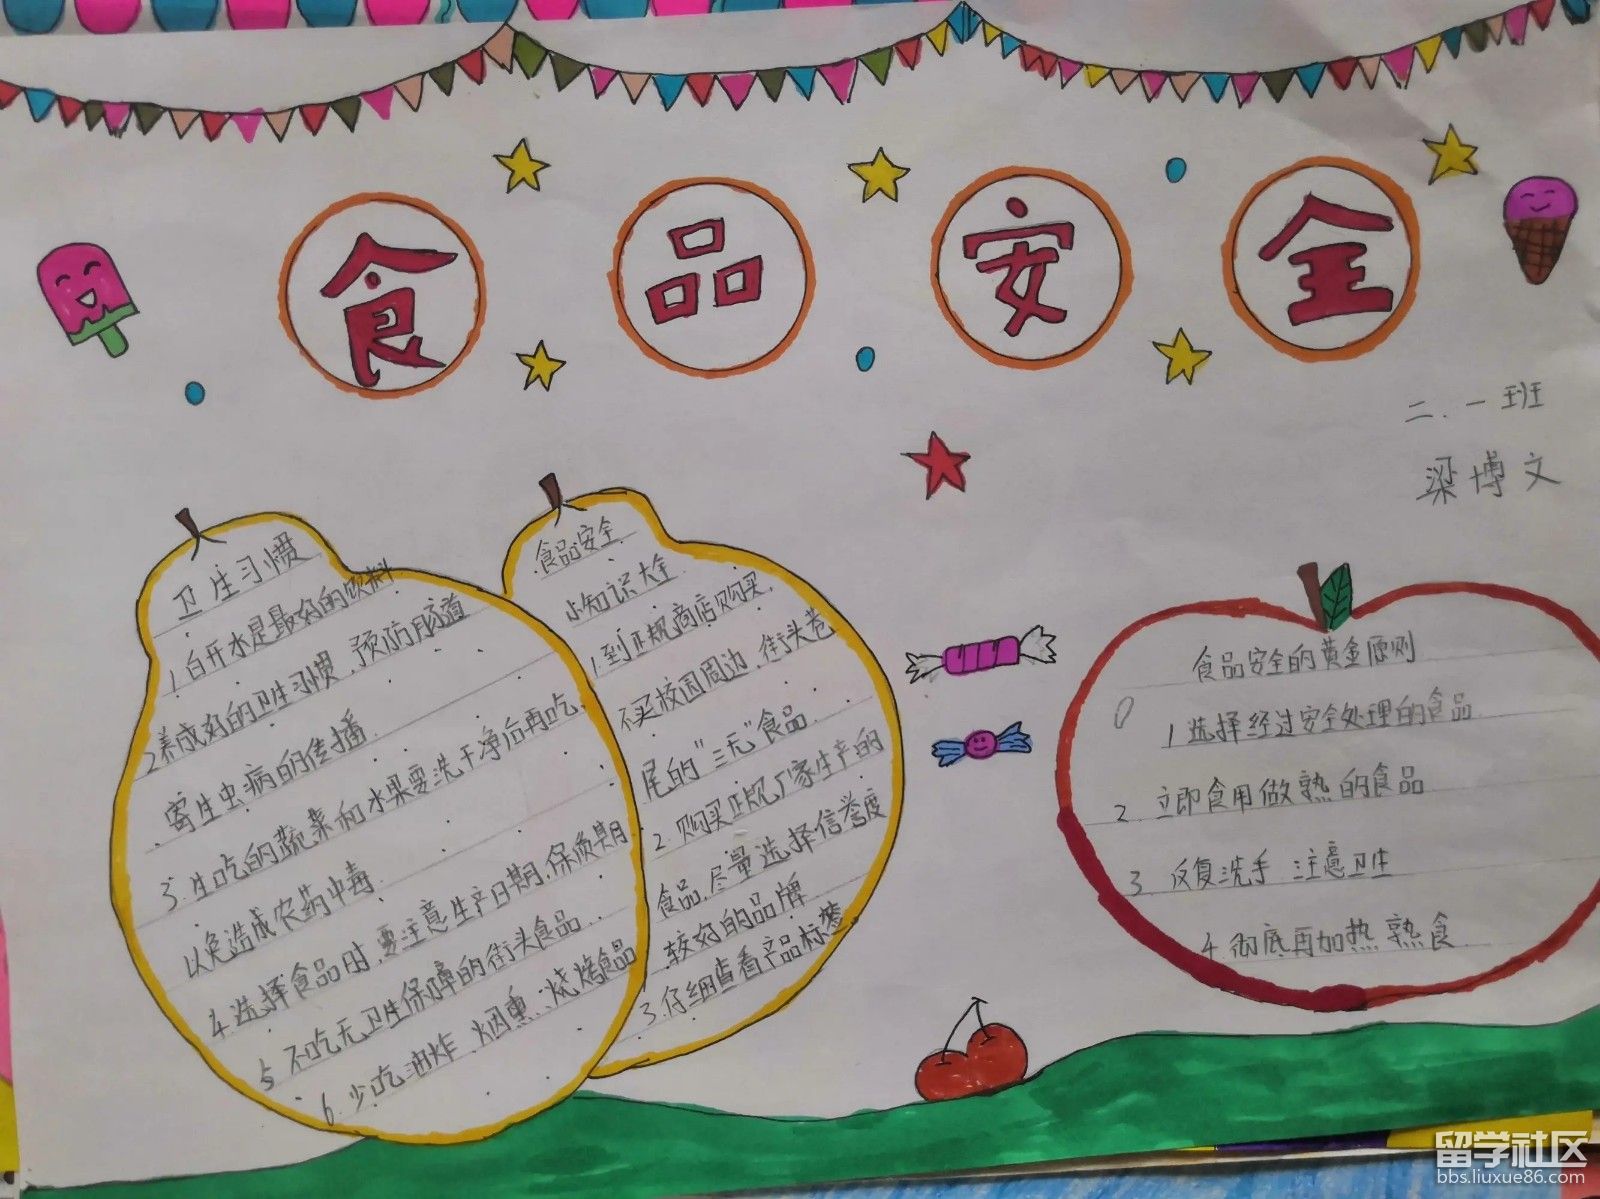 食品安全
二.一班
梁博文
卫生习惯
1.白开水是最好的饮料
2养成好的卫生习惯,预防肠道
寄生虫病的传播.
3.生吃的蔬菜和水果要洗干净后再吃,
以免造成农药中毒.
4.选择食品时,要注意生产日期,保质期
5 不吃无卫生保障的街头食品.
6.少吃油炸.烟熏.烧烤食品
食品安全
小知识大全
1.到正规商店购买,
不买校园周边.街头巷
尾的"三无"食品.
2.购买正规厂家生产的
食品,尽量选择信誉度
较好的品牌
3.仔细查看产品标签
食品安全的黄金原则
1选择经过安全处理的食品
2.立即食用做熟的食品
3.反复洗手 注意卫生
4.彻底再加热熟食
留学社区
bbs.liuxue86.com